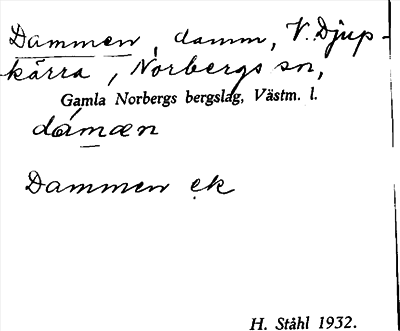 Dammen, damm, V. Djup-
kärra, Norbergs sn,
Gamla Norbergs bergslag, Västm. l.
dámæn
Dammen ek
H. Ståhl 1932.